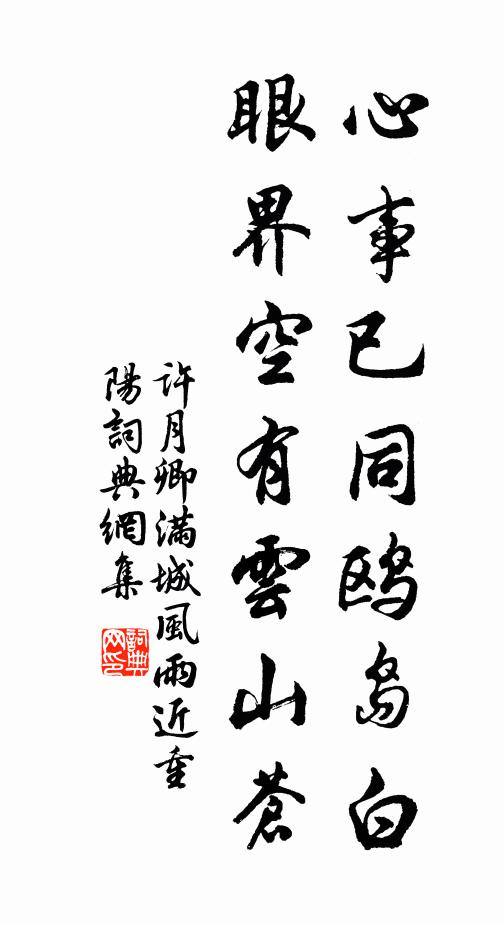 心事已同鸥鸟白
眼界空有雲山蒼
許月卿滿城風雨近重
陽詞典網集
詞典网印